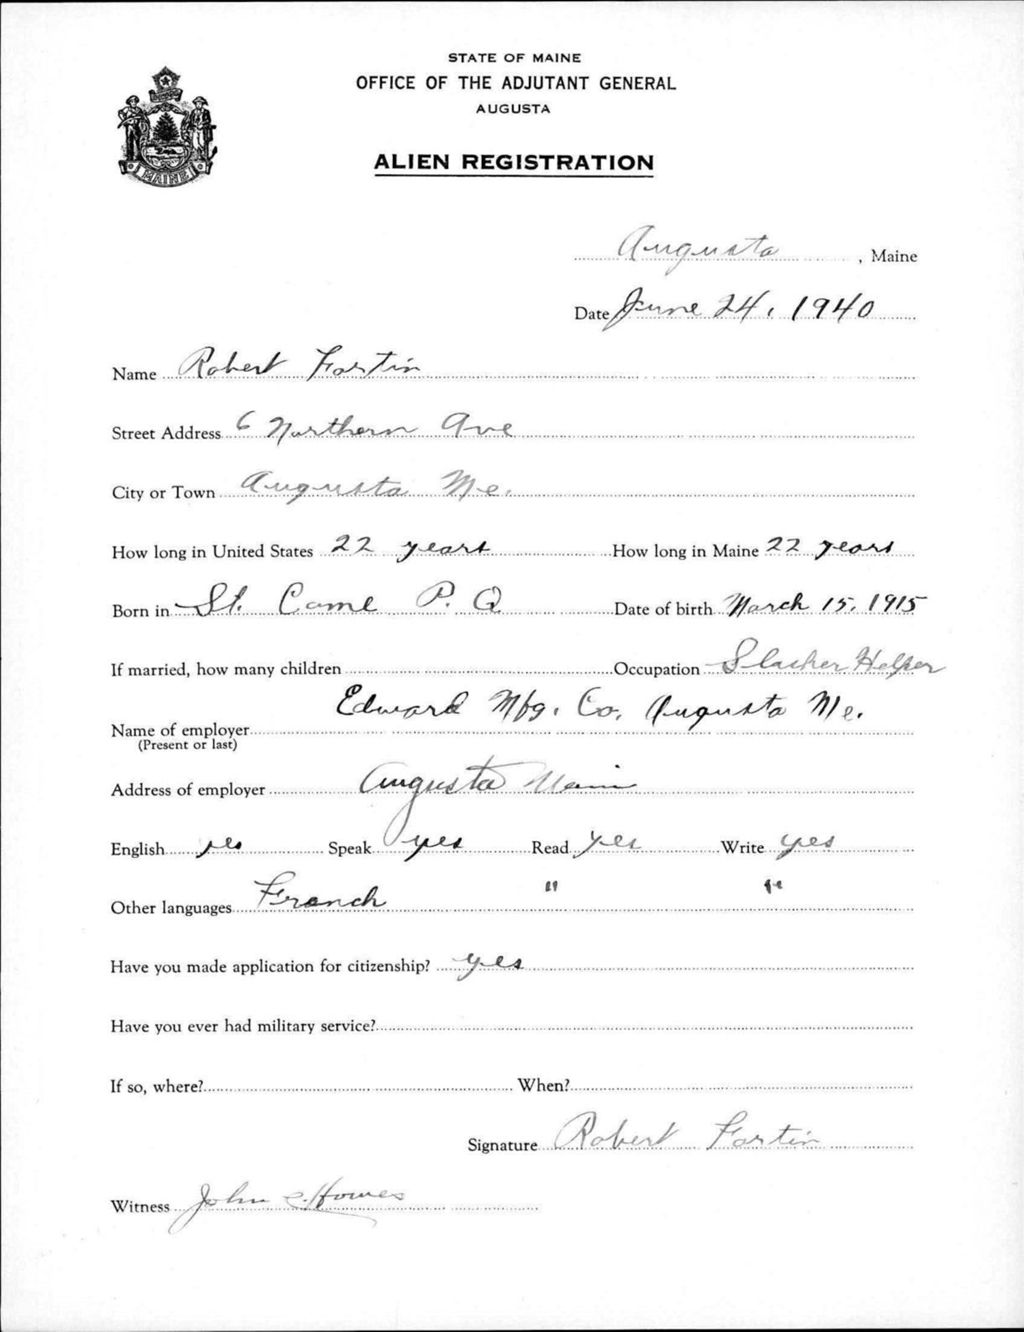 STATE OF MAINE
OFFICE OF THE ADJUTANT GENERAL
AUGUSTA
ALIEN REGISTRATION
MAINE
Augusta, Maine
Date June 24, 1940
Name Robert Fortin
Street Address 6 Northern Ave
City or Town Augusta Me.
How long in United States 22 years How long in Maine 22 years
Born in St. Came P. Q Date of birth March 15, 1915
If married, how many children Occupation Slasher Helper
Name of employer Edward Mfg. Co. Augusta Me.
(Present or last)
Address of employer Augusta Maine
English yes Speak yes Read yes Write yes
Other languages French " "
Have you made application for citizenship? yes
Have you ever had military service?
If so, where? When?
Signature Robert Fortin
Witness John Howes